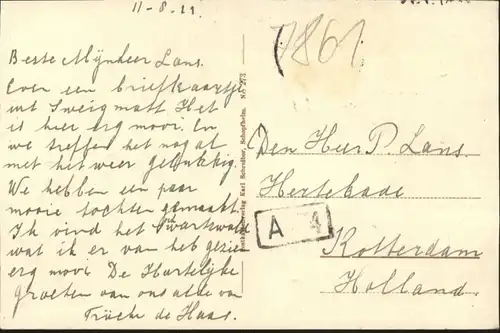 11-8-21.
Beste Mijnheer Lans.
Even een briefkaartje
uit Sweigmatt Het
is hier erg mooi. En
we treffen het nog al
met het weer gelukkig.
We hebben een paar
mooie tochten gemaakt.
Ik vind het Swartswald
wat ik er van heb gezien
erg mooi. De Hartelijke
groeten van ons alle van
de Haas.
Karl Schreiber, Schopfheim. No 273
7861
Den Heer P. Lans.
Hertekade
A 4
Rotterdam
Holland.